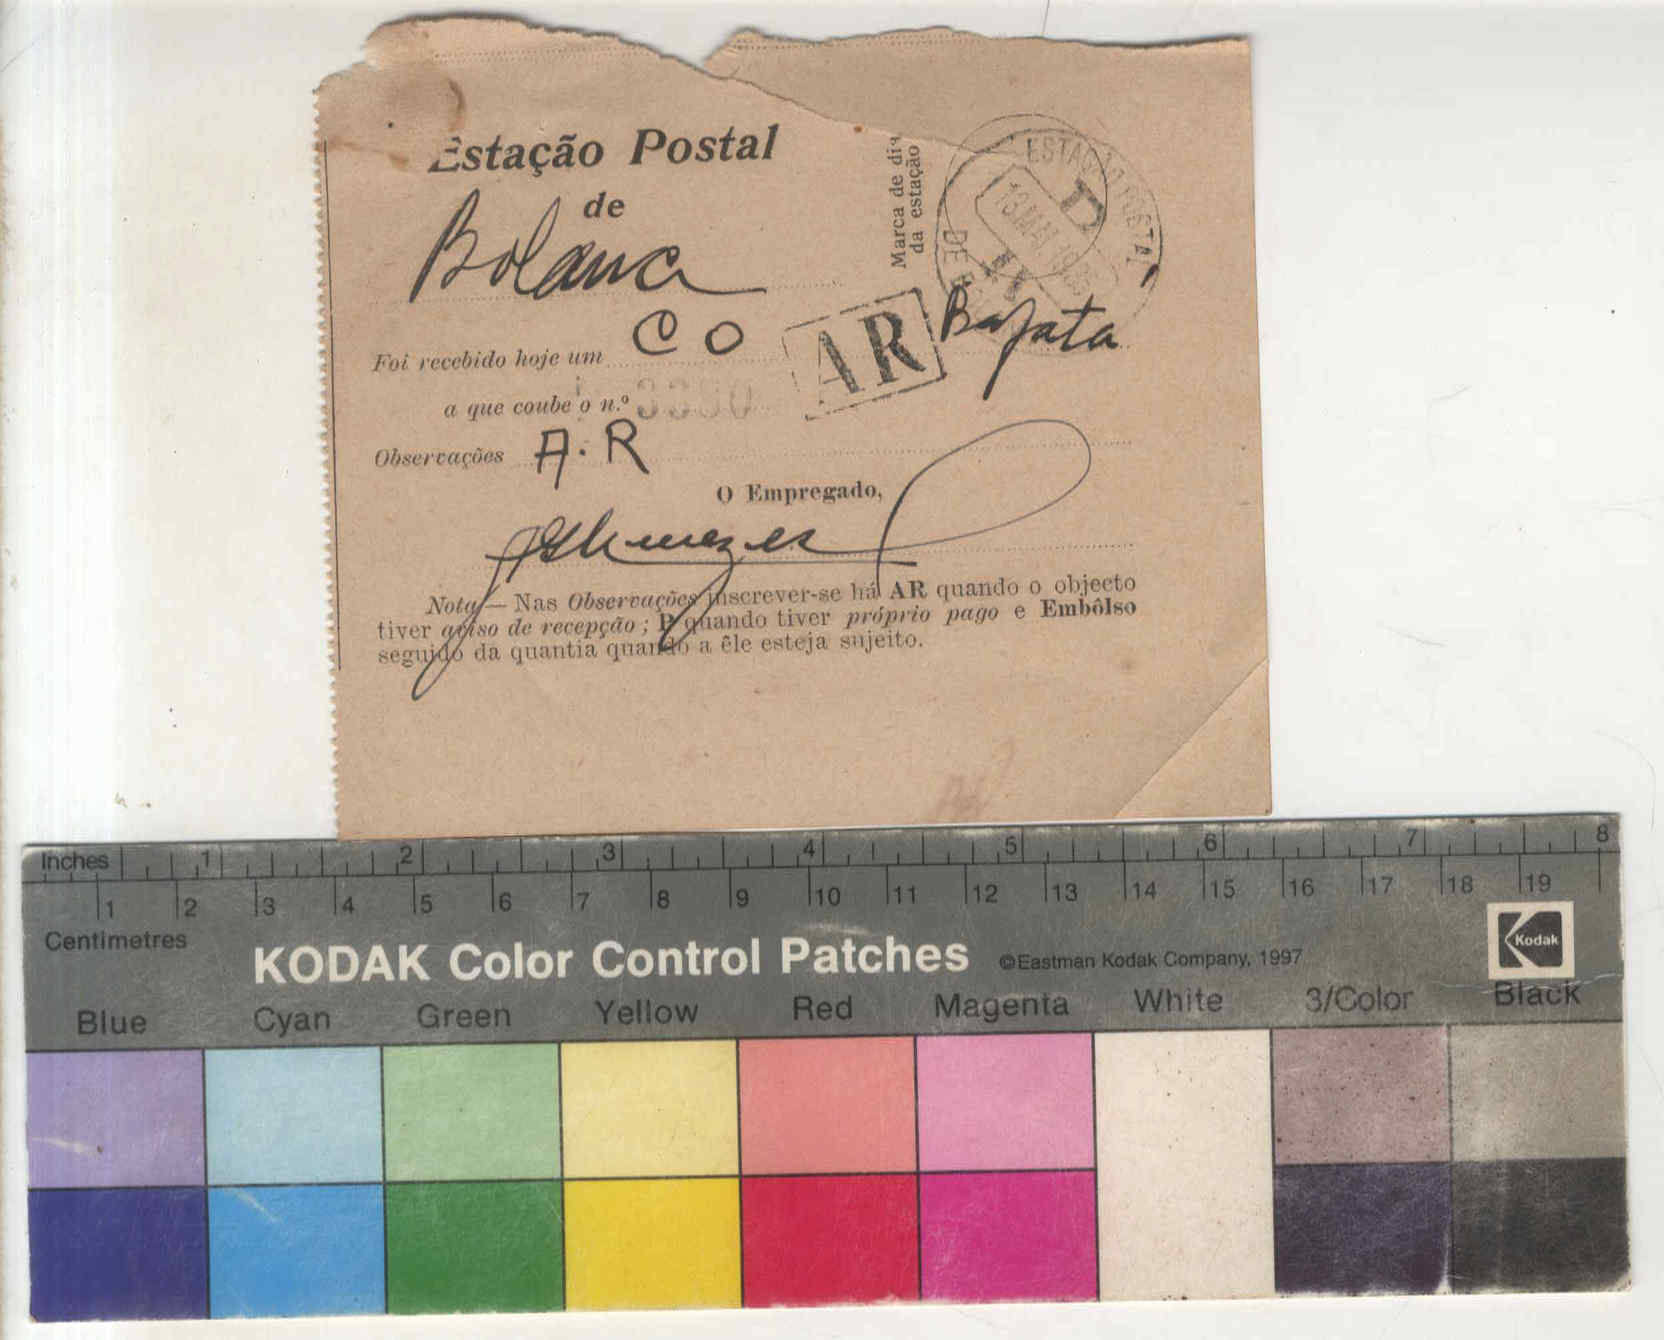 Estação Postal
de
Bolama
Marca de dia
da estação
ESTAÇÃO POSTAL
DE
Foi recebido hoje um CO
AR
a que coube o n.º
Observações A.R
O Empregado,
Nota — Nas Observações inscrever-se há AR quando o objecto
tiver aviso de recepção; P quando tiver próprio pago e Embôlso
seguido da quantia quando a êle esteja sujeito.
Inches 1 2 3 4 5 6 7 8
1 2 3 4 5 6 7 8 9 10 11 12 13 14 15 16 17 18 19
Centimetres
KODAK Color Control Patches ©Eastman Kodak Company, 1997 Kodak
Blue Cyan Green Yellow Red Magenta White 3/Color Black